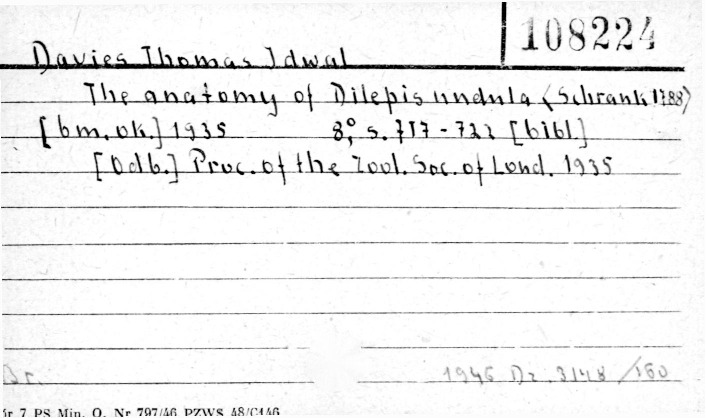 108224
Davies Thomas Idwal
The anatomy of Dilepis undula (Schrank 1788)
[bm. ok.] 1935 8°, s. 717-722 [bibl.]
[Odb.] Proc. of the Zool. Soc. of Lond. 1935
Br. 1946 Dz. 3148/160
ór 7 PS Min. O. Nr 797/46 PZWS 48/C146